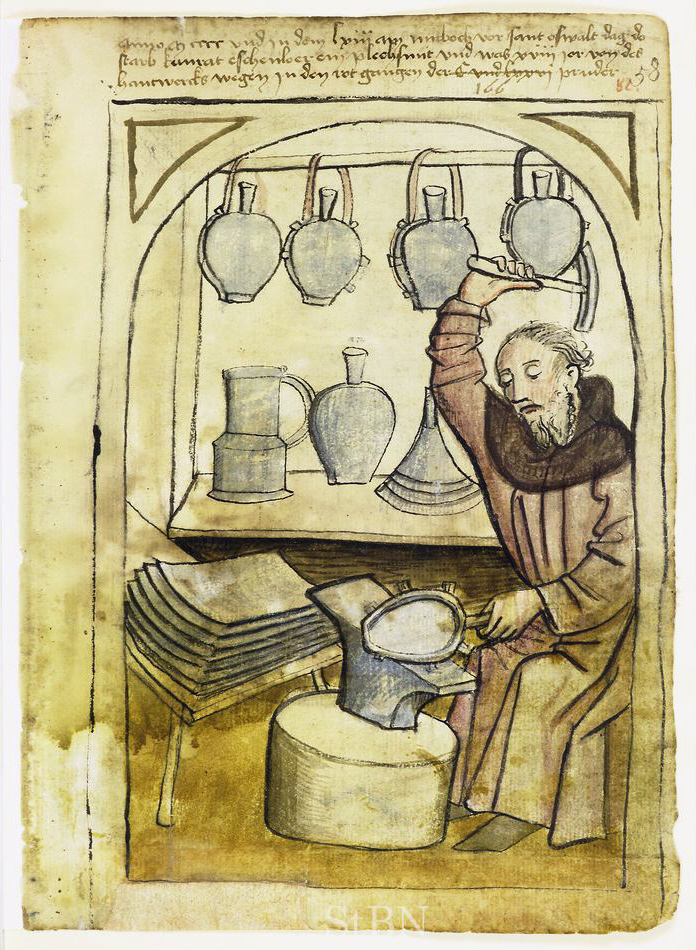 Anno m cccc und in dem lxiii am mitboch vor sant oswalt dag do
starb kunrat eschenloer ein plechsmit und was xviii jor von des
hantwercks wegen in den rot gangen der pruder
166
58
StBN